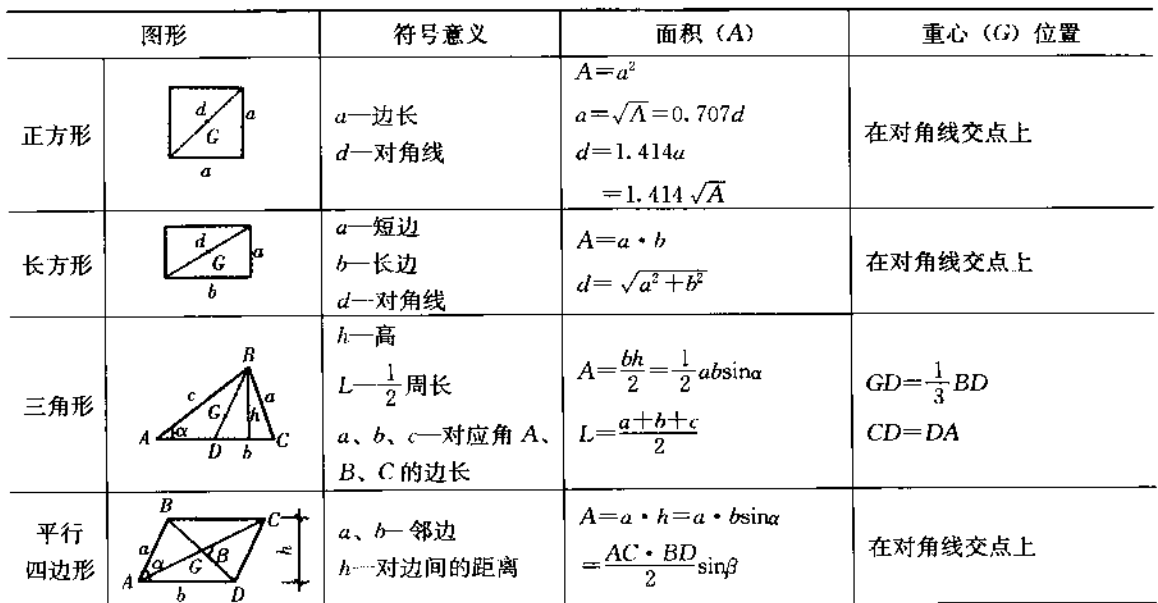 图形 符号意义 面积（A） 重心（G）位置
正方形
d
a
G
a
a—边长
d—对角线
A=a²
a=√A=0.707d
d=1.414a
=1.414√A
在对角线交点上
长方形
d
a
G
b
a—短边
b—长边
d—对角线
A=a·b
d=√(a²+b²)
在对角线交点上
三角形
B
c
a
G
h
A
α
C
D
b
h—高
L—1/2周长
a、b、c—对应角A、
B、C的边长
A=bh/2=1/2absinα
L=(a+b+c)/2
GD=1/3BD
CD=DA
平行
四边形
B
C
a
α
G
β
h
A
b
D
a、b—邻边
h—对边间的距离
A=a·h=a·bsinα
=AC·BD/2sinβ
在对角线交点上